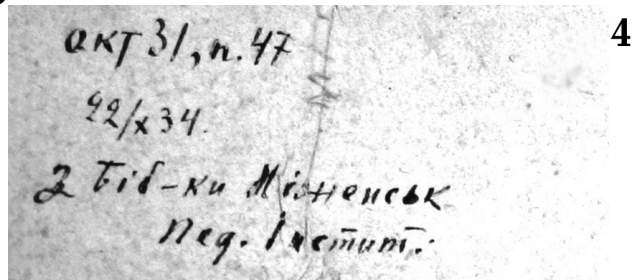 акт 31, п. 47
4
22/х 34.
З біб-ки Ніженськ
Пед. Інстит.